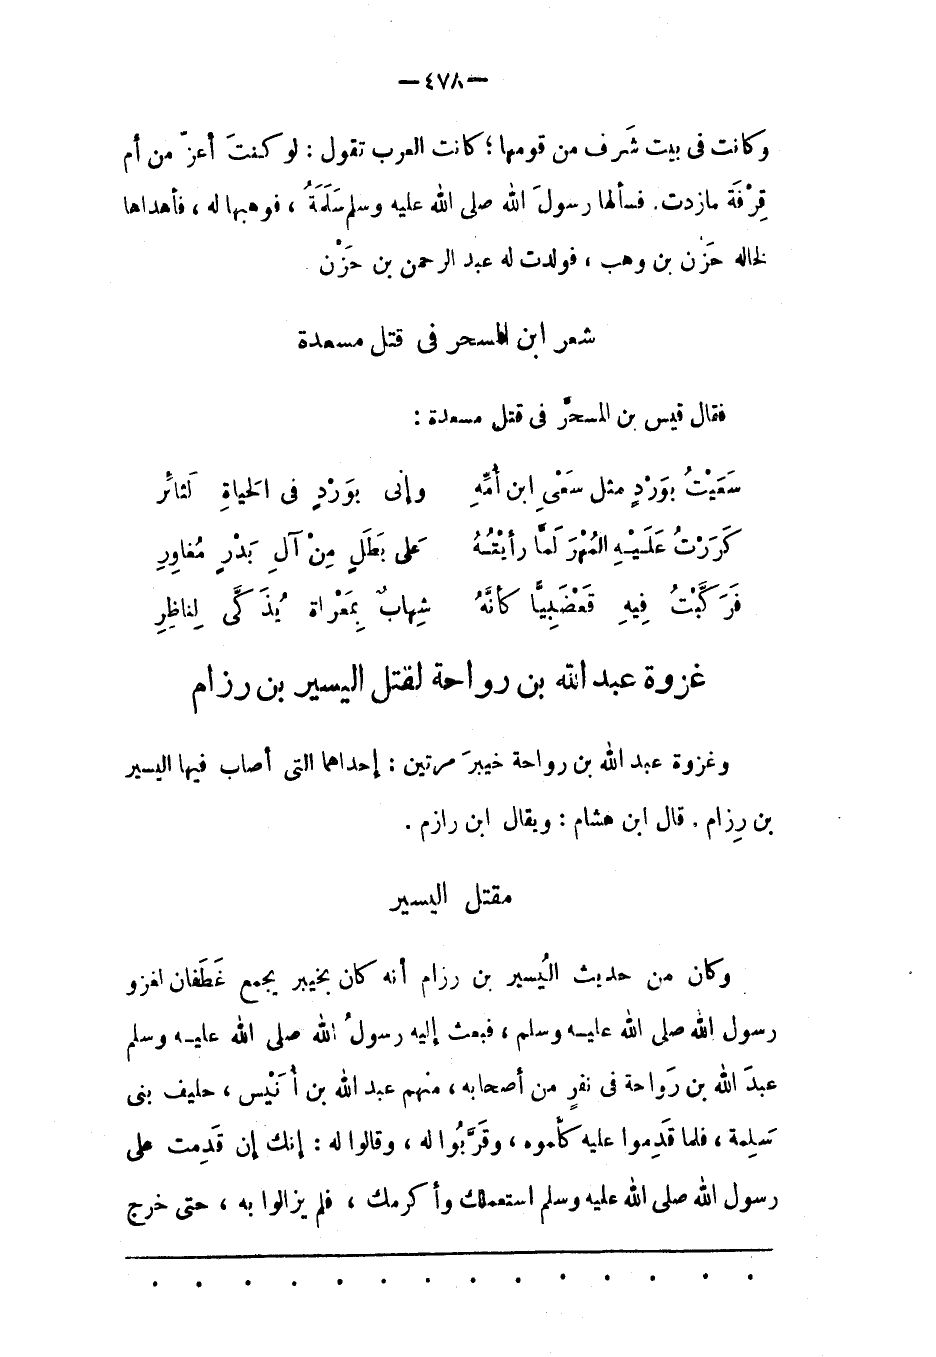 — ٤٧٨ —
وكانت فى بيت شَرف من قومها ؛ كانت العرب تقول : لو كنتَ أعزّ من أم
قِرْفَة مازدت . فسألها رسولَ الله صلى الله عليه وسلم سَلَمَةُ ، فوهبها له ، فأهداها
لخاله حَزْن بن وهب ، فولدت له عبد الرحمن بن حَزْن
شعر ابن المسحر فى قتل مسعدة
فقال قيس بن المسحَّر فى قتل مسعدة :
سَعَيْتُ بوَرْدٍ مثل سَعْىِ ابن أُمِّهِ وإنى بوَرْدٍ فى الحَياةِ لَثائرُ
كَرَرْتُ عَلَيْهِ المُهْرَ لَمَّا رأيْتُهُ عَلى بَطَلٍ مِنْ آلِ بَدْرٍ مُغاوِرِ
فَرَكَّبْتُ فِيهِ قَعْضَبِيًّا كأنَّهُ شِهابٌ بِمَعْراة يُذَكَّى لِناظِرِ
غزوة عبد الله بن رواحة لقتل اليسير بن رزام
وغزوة عبد الله بن رواحة خيبرَ مرتين : إحداهما التى أصاب فيها اليسير
بن رِزام . قال ابن هشام : ويقال ابن رازم .
مقتل اليسير
وكان من حديث اليُسير بن رزام أنه كان بخيبر يجمع غَطَفان لغزو
رسول الله صلى الله عليه وسلم ، فبعث إليه رسولُ الله صلى الله عليه وسلم
عبدَ الله بن رَواحة فى نفرٍ من أصحابه ، منهم عبد الله بن أُنَيْس ، حليف بنى
سَلِمة ، فلما قَدِموا عليه كلَّموه ، وقَرَّبُوا له ، وقالوا له : إنك إن قَدِمت على
رسول الله صلى الله عليه وسلم استعملك وأكرمك ، فلم يزالوا به ، حتى خرج
. . . . . . . . . . . . . .